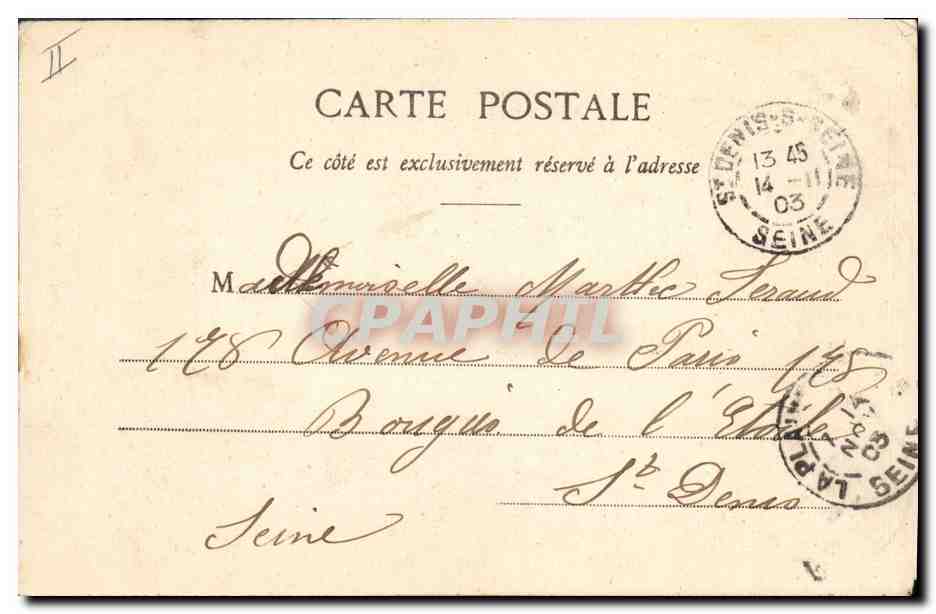 II
CARTE POSTALE
Ce côté est exclusivement réservé à l'adresse
ST DENIS-S-SEINE
13 45
14 -11
03
SEINE
Mademoiselle Marthe Seraud
CPAPHIL
178 Avenue de Paris 178
Bougus de l'Etoile
St Denis
Seine
LA PLAINE
14
NOV
03
SEINE